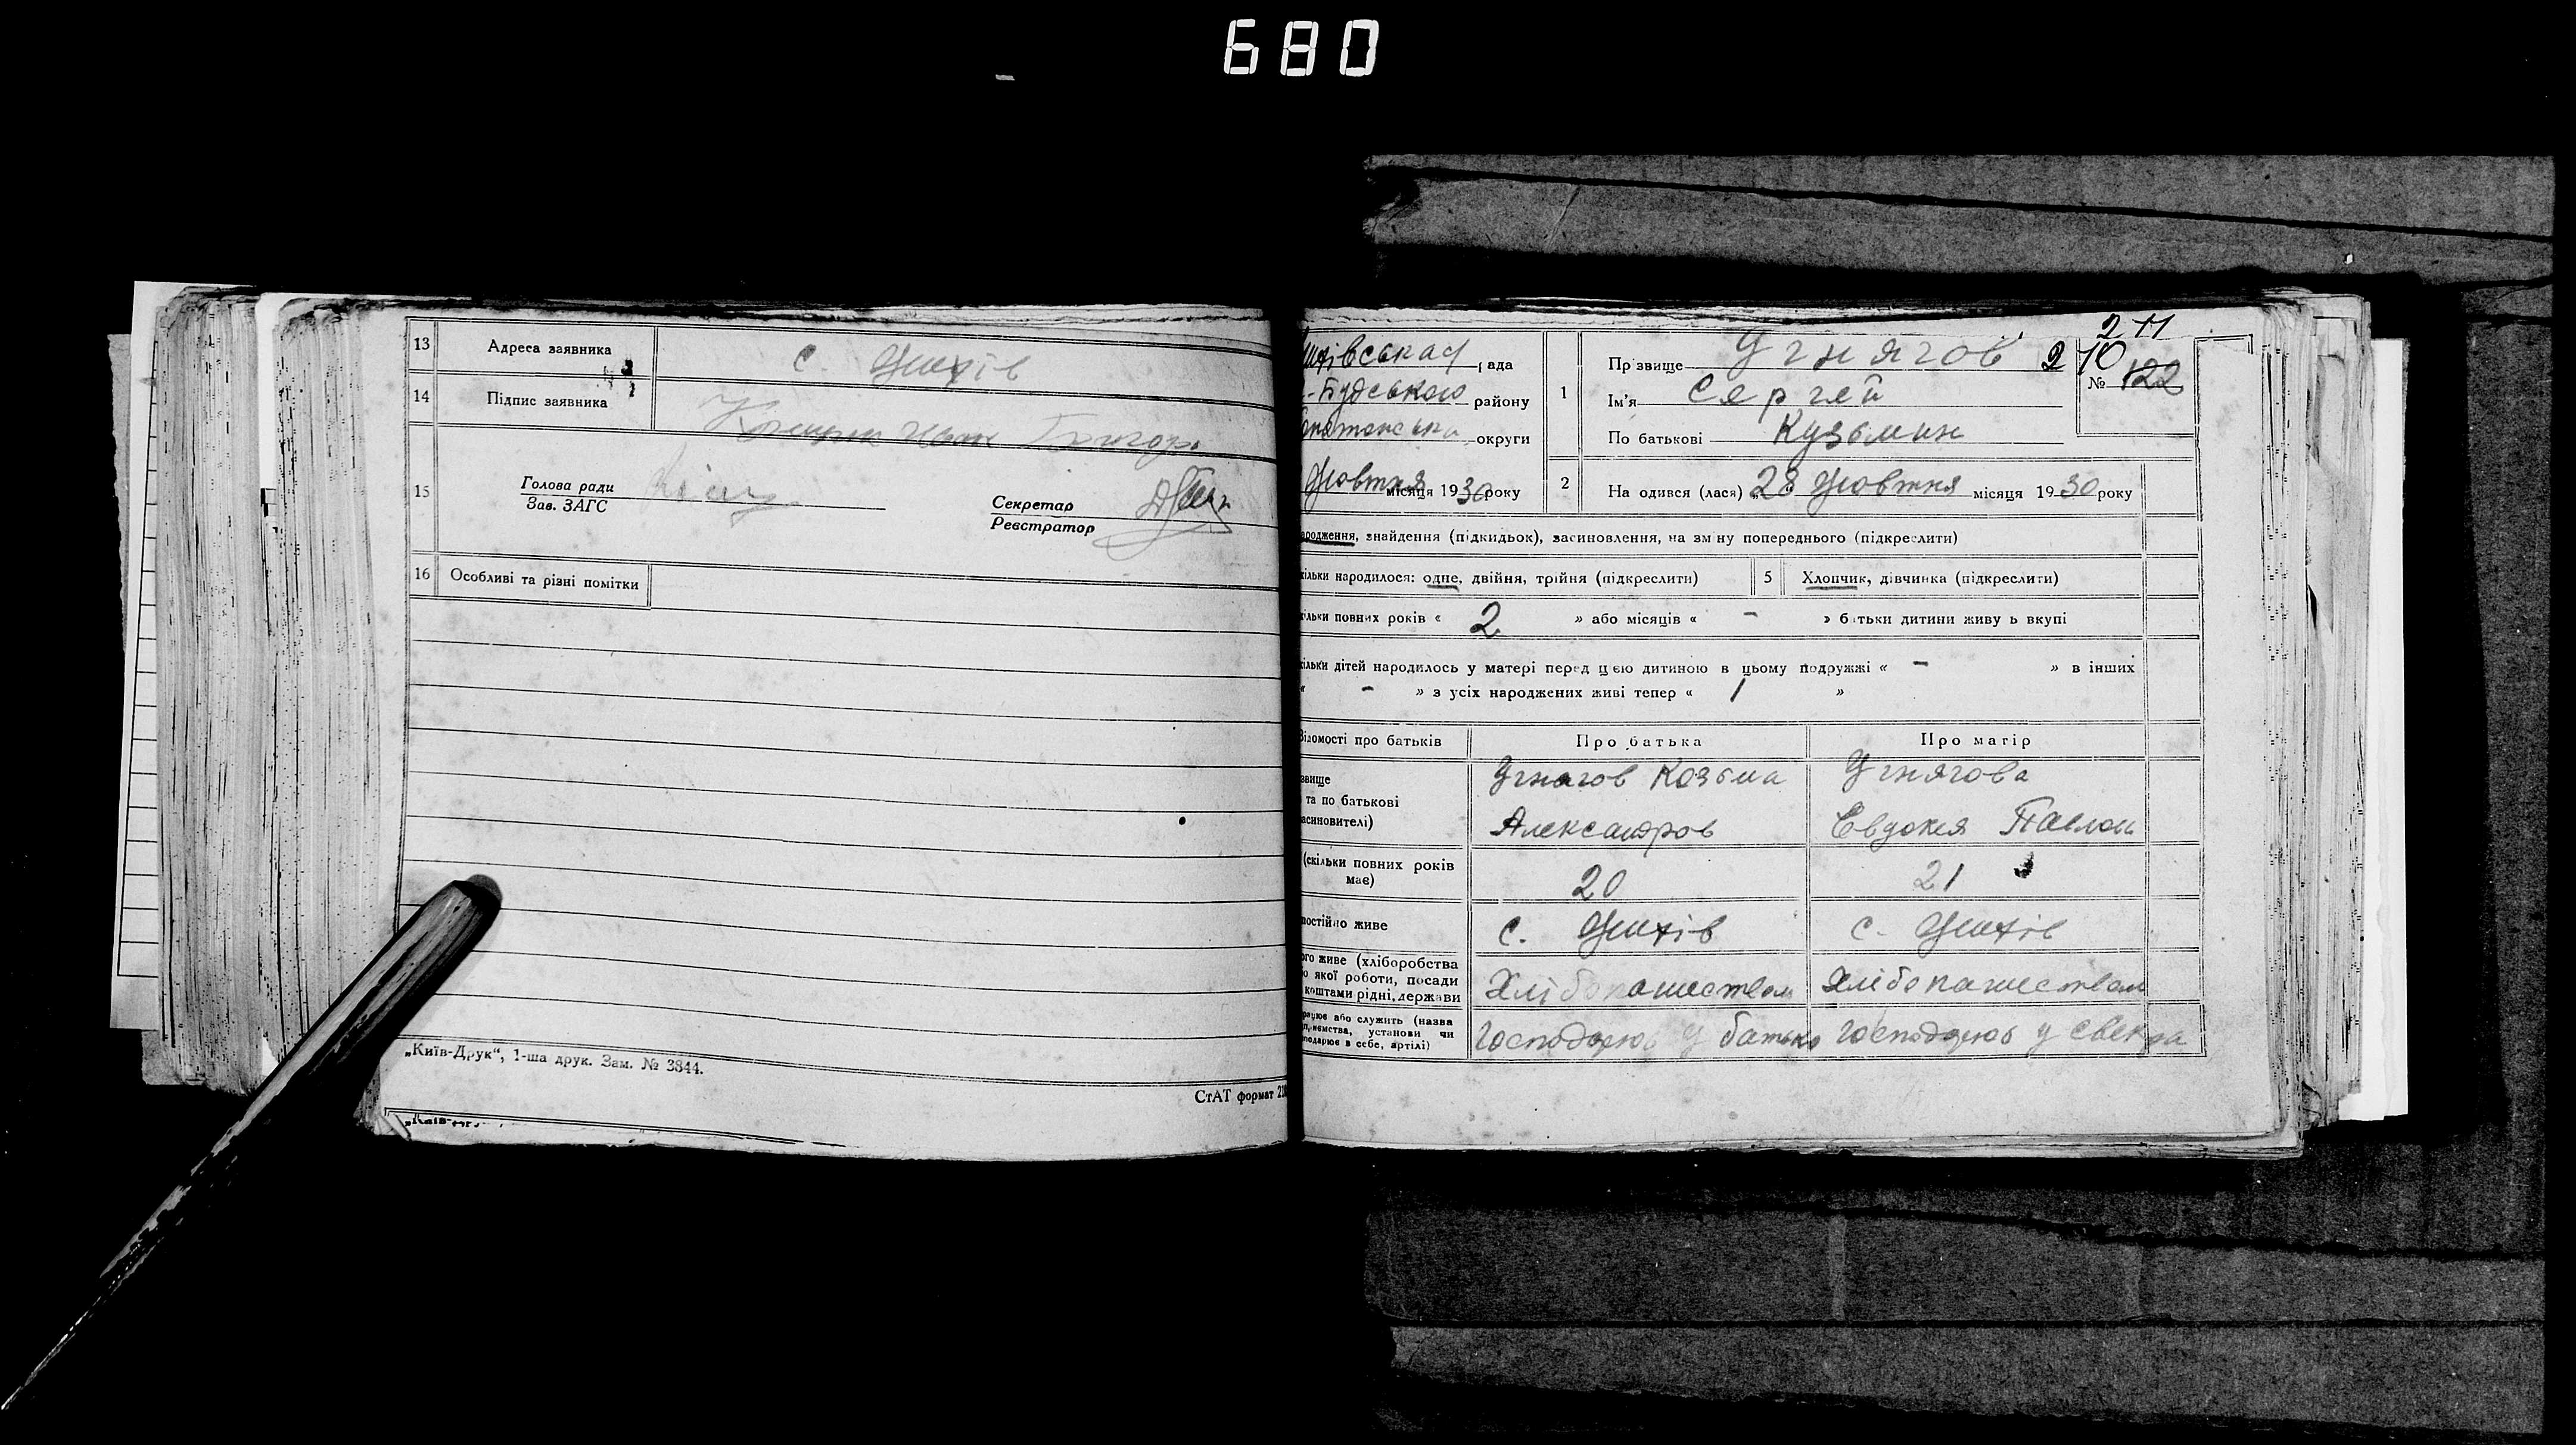 680
13 Адреса заявника с. Жихів
14 Підпис заявника
15 Голова ради
Зав. ЗАГС
Секретар
Реєстратор
16 Особливі та різні помітки
„Київ-Друк“, 1-ша друк. Зам. № 3844.
СтАТ формат
2 11
ихівськая рада
-Будського району
округи
Жовтня місяця 1930 року
1 Прізвище Угнягов
Ім'я Сергей
По батькові Кузьмин
210
№ 122
2 Народився (лася) „28 Жовтня місяця 1930 року
родження, знайдення (підкидьок), засиновлення, на зміну попереднього (підкреслити)
кільки народилося: одне, двійня, трійня (підкреслити) 5 Хлопчик, дівчинка (підкреслити)
ільки повних років « 2 » або місяців « - » батьки дитини живуть вкупі
кільки дітей народилось у матері перед цією дитиною в цьому подружжі « - » в інших
« - » з усіх народжених живі тепер « 1 »
Відомості про батьків Про батька Про матір
звище
та по батькові
асиновителі)
Угнягов Козьма
Александров
Угнягова
Евдокия Павлов
(скільки повних років
має) 20 21
постійно живе с. Жихів с. Жихів
ого живе (хліборобства
о якої роботи, посади
коштами рідні, держави
Хлібопашеством Хлібопашеством
рацює або служить (назва
приємства, установи чи
подарює в себе, артілі)
господарює у батька господарює у свекра